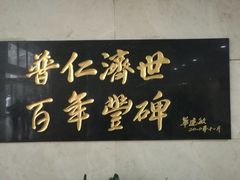 普仁濟世
百年豐碑